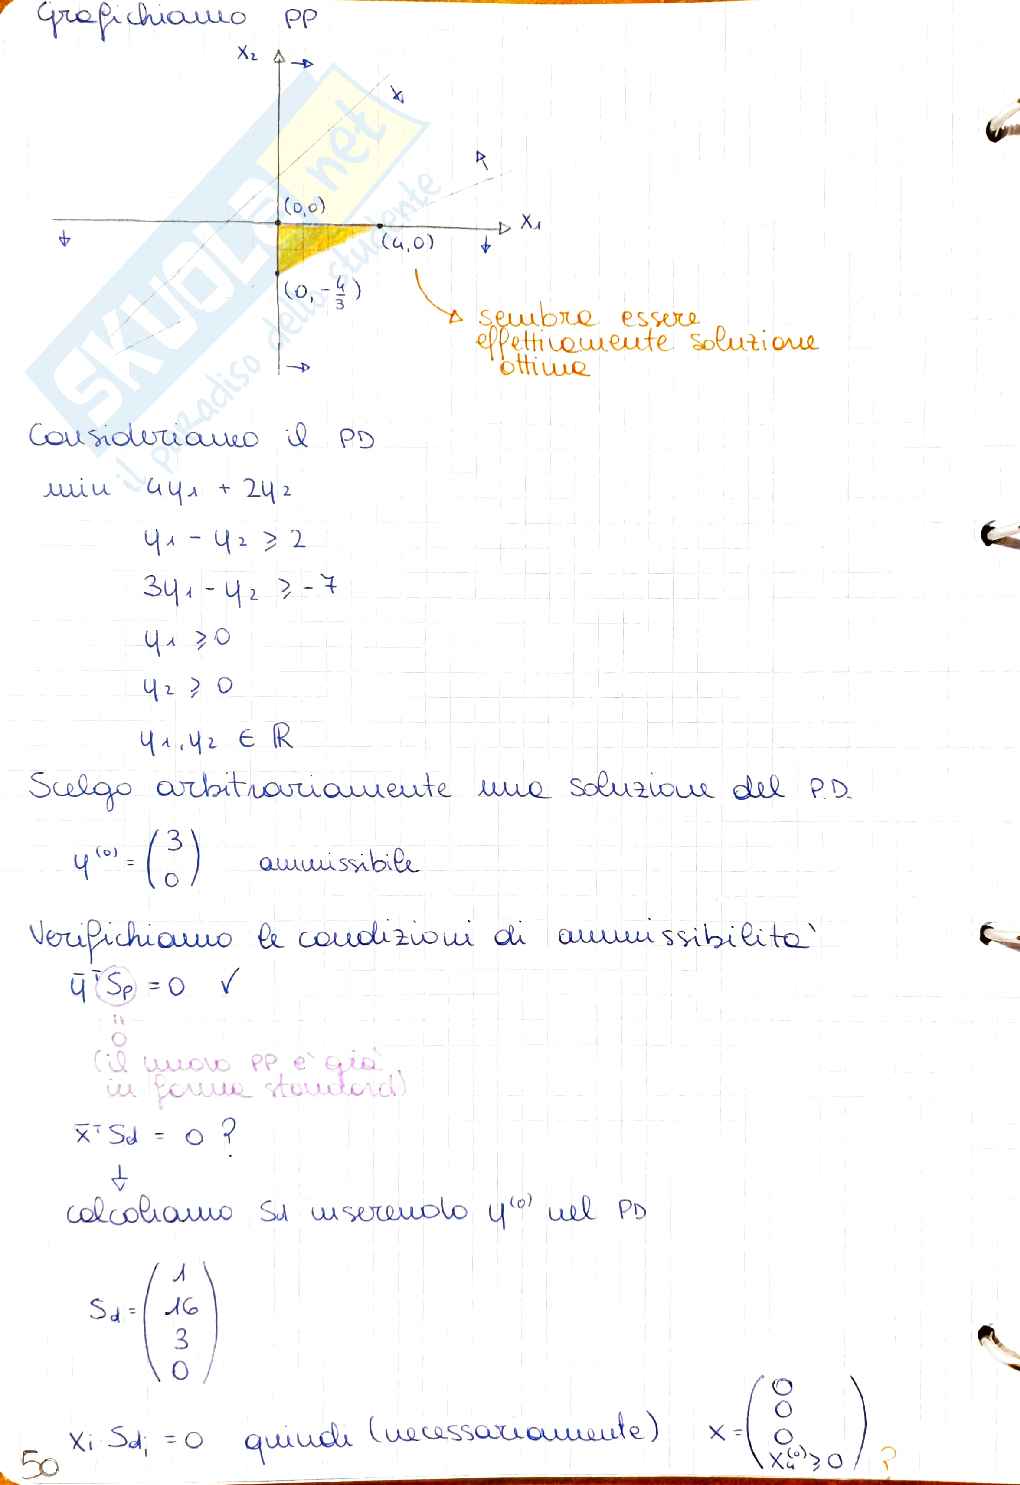 Grafichiamo PP
x₂
(0,0)
x₁
(4,0)
(0, -4/3)
sembra essere
effettivamente soluzione
ottima
SKUOLA.net
il paradiso dello studente
Consideriamo il PD
min 4y₁ + 2y₂
y₁ - y₂ ≥ 2
3y₁ - y₂ ≥ -7
y₁ ≥ 0
y₂ ≥ 0
y₁, y₂ ∈ ℝ
Scelgo arbitrariamente una soluzione del P.D.
y⁽⁰⁾ = (3 0) ammissibile
Verifichiamo le condizioni di ammissibilità
ȳᵀ Sp = 0 ✓
"
0
(il nuovo PP è già
in forma standard)
x̄ᵀ Sd = 0 ?
calcoliamo Sd inserendo y⁽⁰⁾ nel PD
Sd = (1 16 3 0)
xᵢ Sdᵢ = 0 quindi (necessariamente) x = (0 0 0 x₄⁽⁰⁾ ≥ 0) ?
50